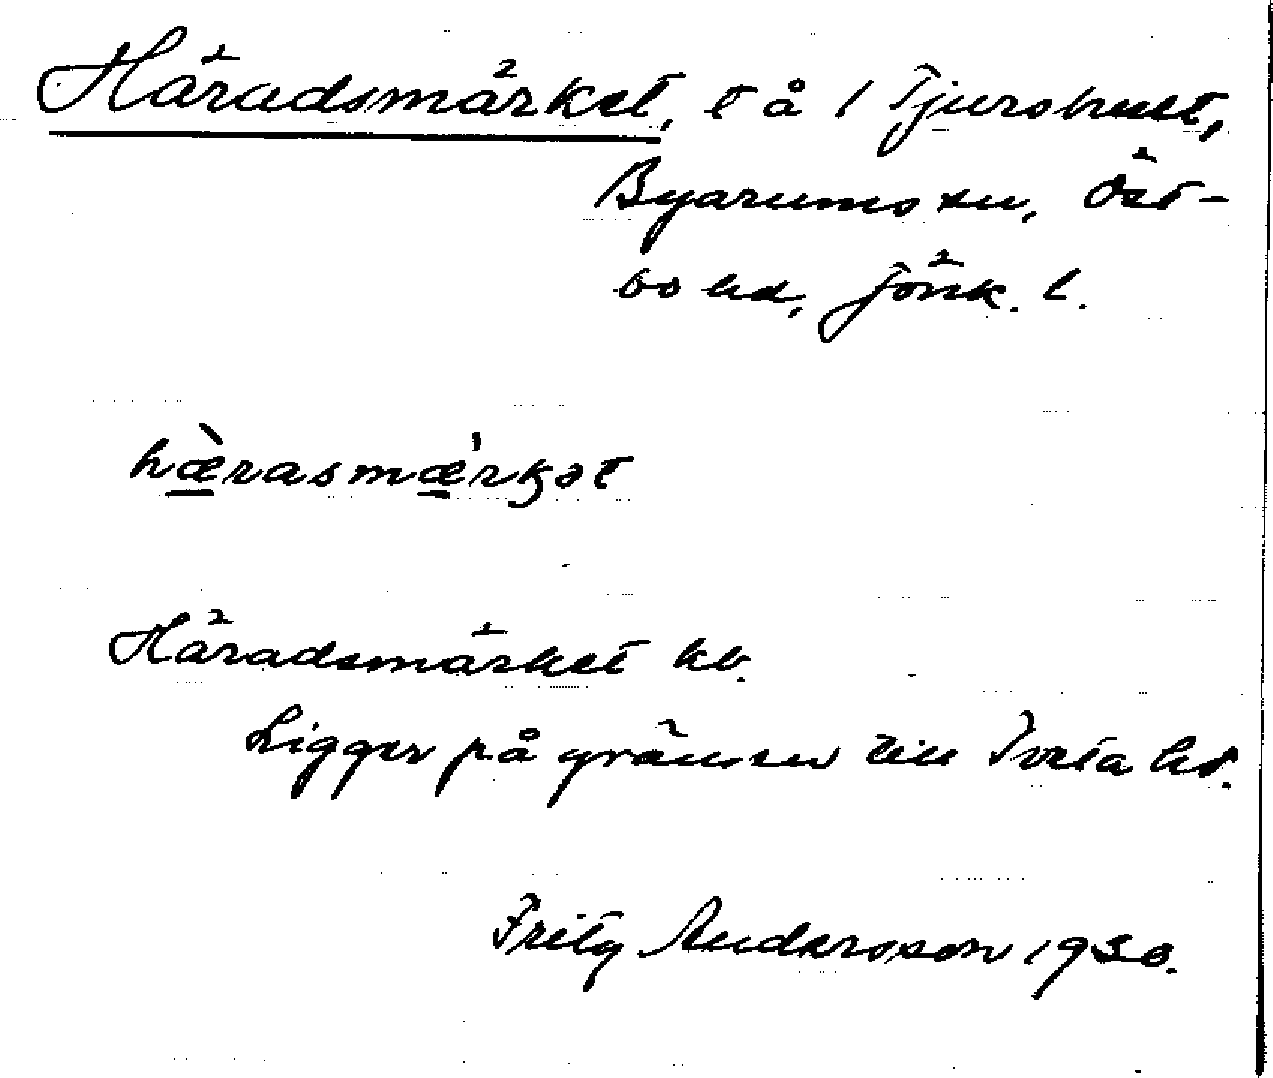 Häradsmärket, t å 1 Tjurshult,
Byarums sn, Öst-
bo hd, Jönk. l.
hæ̀rasmǽrkət
Häradsmärket kb.
Ligger på gränsen till Tveta hd.
Fritz Andersson 1930.